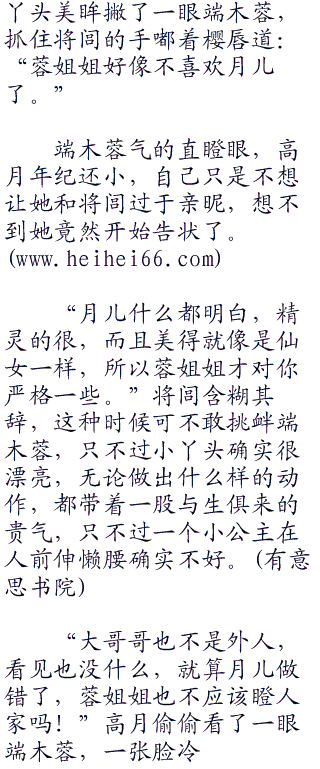 丫头美眸撇了一眼端木蓉，
抓住将闾的手嘟着樱唇道：
“蓉姐姐好像不喜欢月儿
了。”
端木蓉气的直瞪眼，高
月年纪还小，自己只是不想
让她和将闾过于亲昵，想不
到她竟然开始告状了。
(www.heihei66.com)
“月儿什么都明白，精
灵的很，而且美得就像是仙
女一样，所以蓉姐姐才对你
严格一些。”将闾含糊其
辞，这种时候可不敢挑衅端
木蓉，只不过小丫头确实很
漂亮，无论做出什么样的动
作，都带着一股与生俱来的
贵气，只不过一个小公主在
人前伸懒腰确实不好。(有意
思书院)
“大哥哥也不是外人，
看见也没什么，就算月儿做
错了，蓉姐姐也不应该瞪人
家吗！”高月偷偷看了一眼
端木蓉，一张脸冷